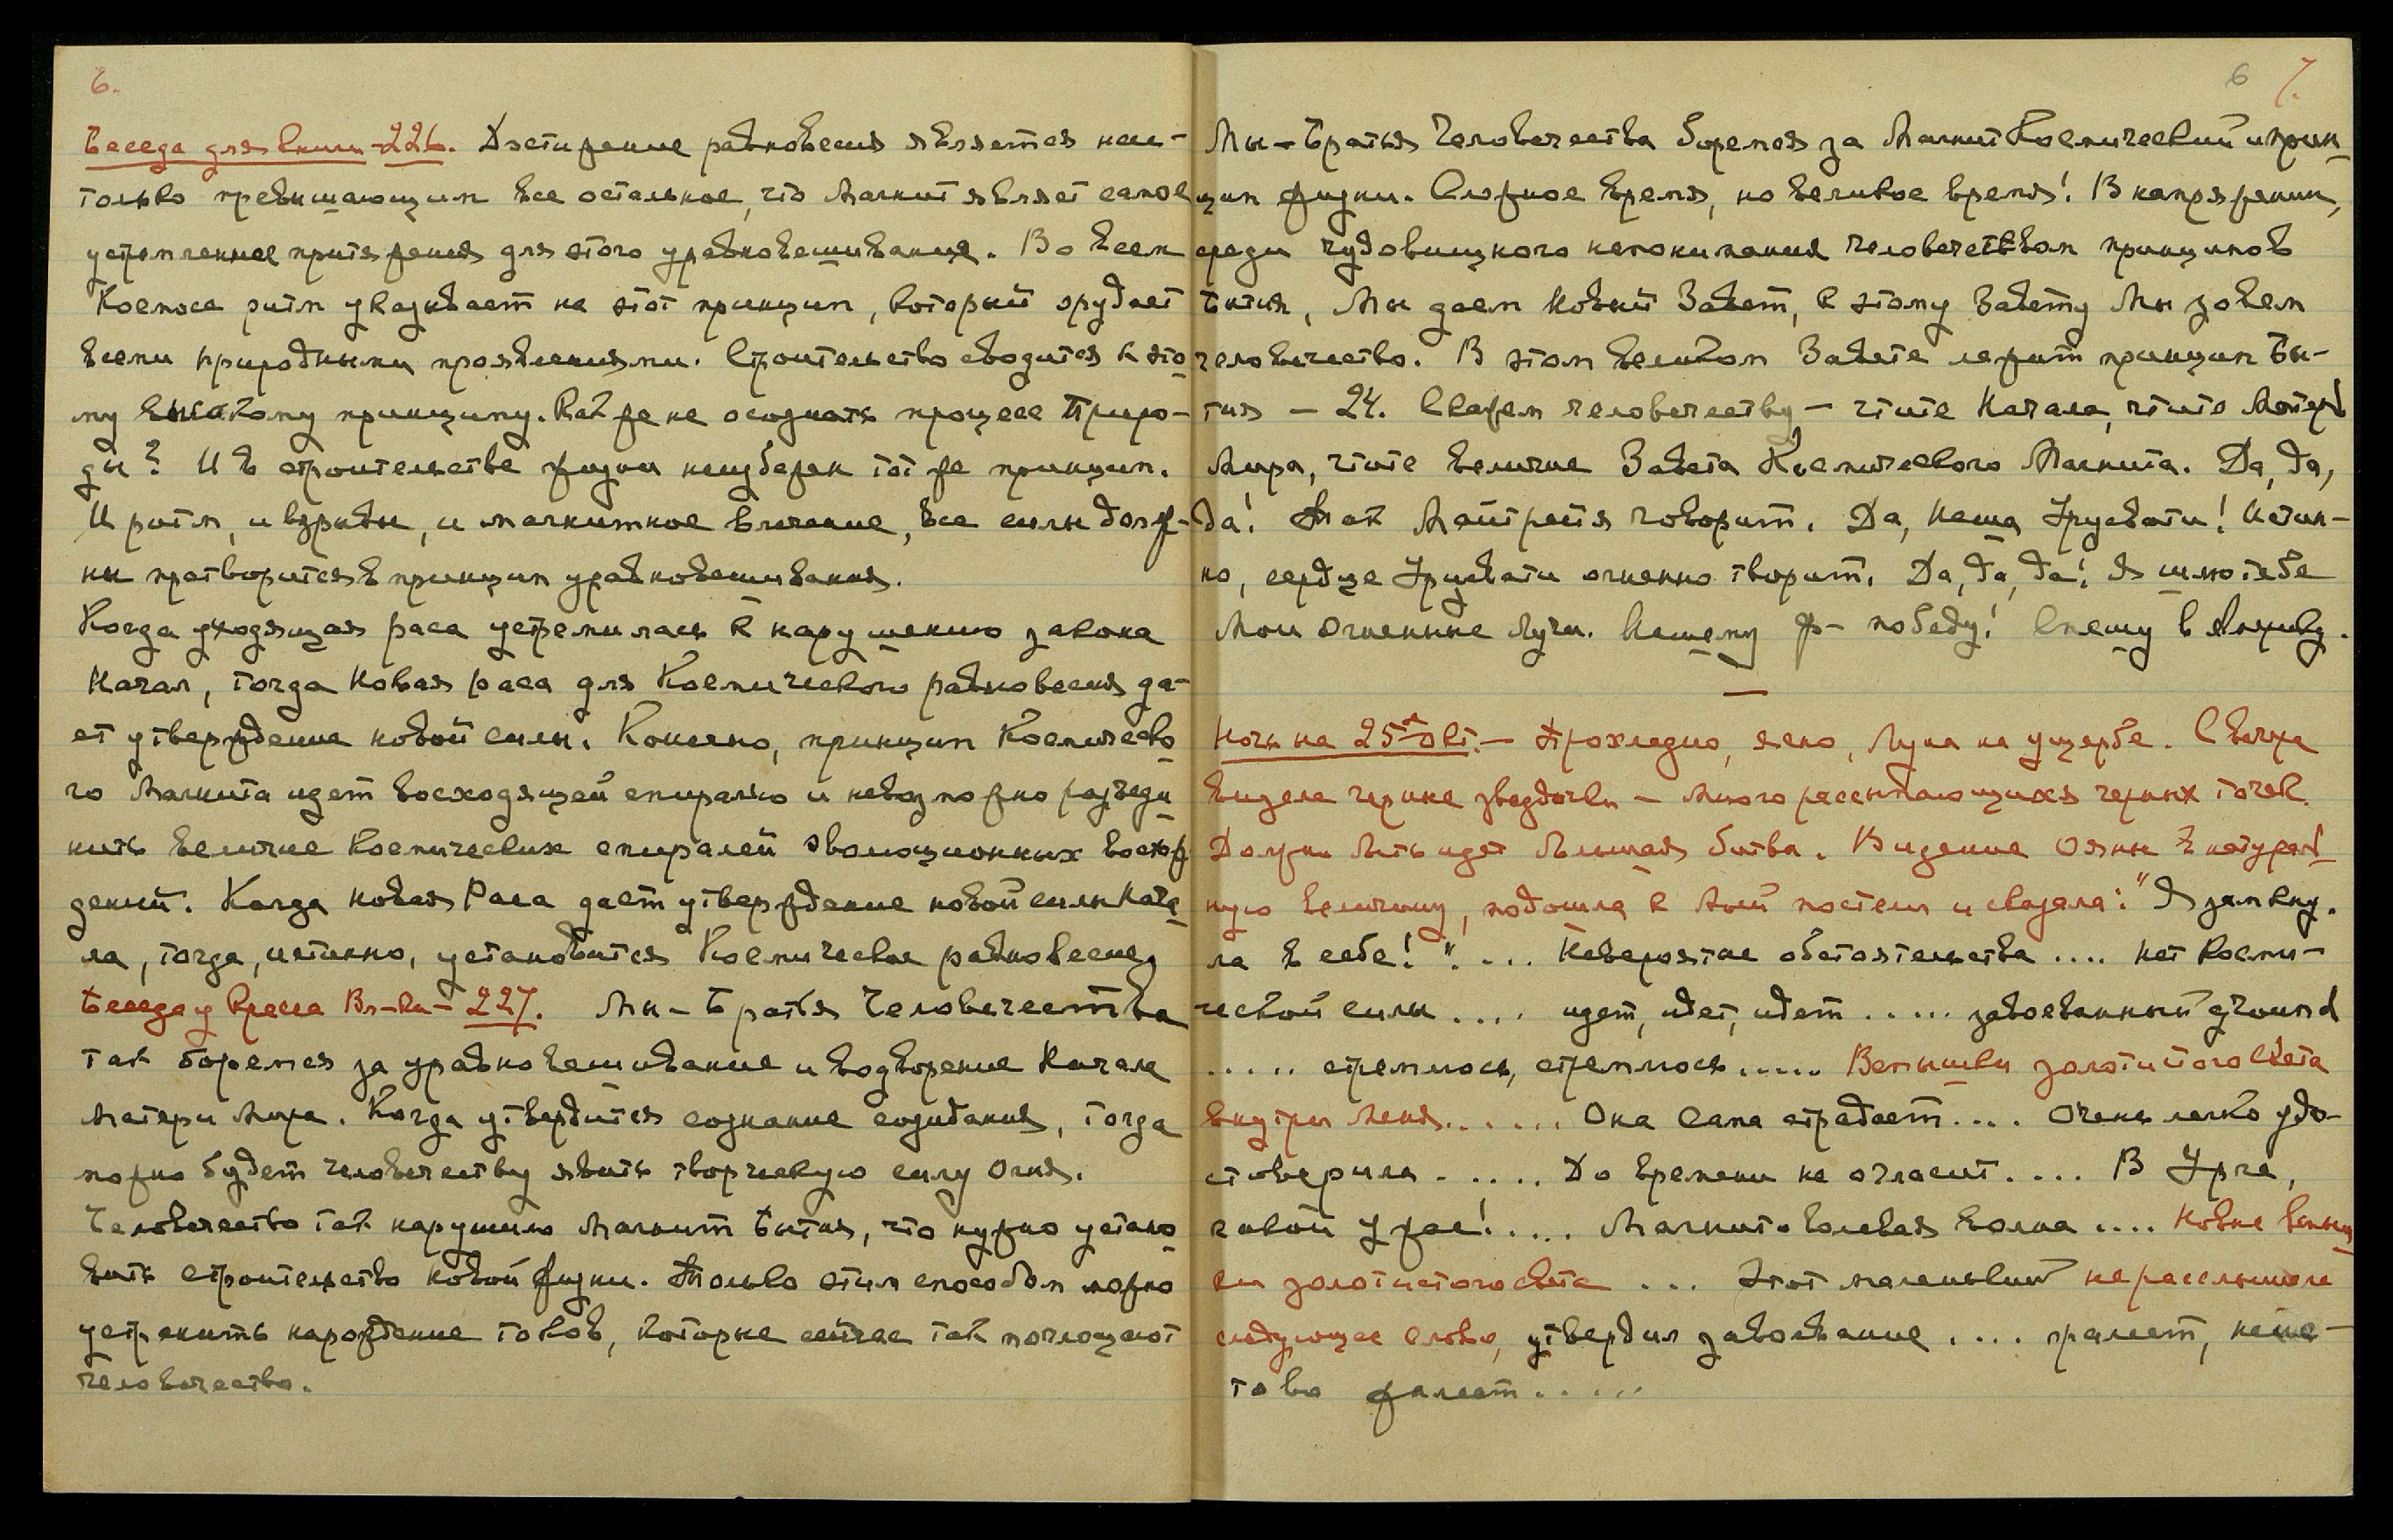 6.
Беседа для книги - 226. Достижение равновесия является нас-
только превышающим все остальное, что Магнит являет самое
устремленное притяжения для этого уравновешивания. Во всем
Космосе ритм указывает на этот принцип, который орудует
всеми природными проявлениями. Строительство сводится к это-
му высокому принципу. Как же не осознать процесс Приро-
ды? И в строительстве жизни неизбежен тот же принцип.
И ритм, и взрывы, и магнитное влечение, все силы долж-
ны претворится в принцип уравновешивания.
Когда уходящая раса устремилась к нарушению закона
Начал, тогда Новая раса для Космического равновесия да-
ет утверждение новой силы. Конечно, принцип Космическо-
го Магнита идет восходящей спиралью и невозможно разъеди-
нить величие Космических спиралей эволюционных восхож-
дений. Когда новая Раса дает утверждение новой силы Нача-
ла, тогда, истинно, установится Космическое равновесие.
Беседа у Кресла Вл-ки - 227. Мы - Братья Человечества
так боремся за уравновешивание и водворение Начала
Матери Мира. Когда утвердится сознание созидания, тогда
можно будет человечеству явить творческую силу Огня.
Человечество так нарушило Магнит Бытия, что нужно устано-
вить строительство новой жизни. Только этим способом можно
устранить нарождение токов, которые сейчас так поглощают
человечество.
6 7.
Мы - Братья Человечества боремся за Магнит Космический и прин-
цип жизни. Сложное время, но великое время! В напряжении,
среди чудовищного непонимания человечеством принципов
Бытия, Мы даем Новый Завет, к этому Завету Мы зовем
человечество. В этом великом Завете лежит принцип Бы-
тия - 24. Скажем человечеству - чтите Начала, чтите Матерь
Мира, чтите величие Завета Космического Магнита. Да, да,
да! Так Майтрейя говорит. Да, наша Урусвати! Истин-
но, сердце Урусвати огненно творит. Да, да, да! Я шлю тебе
Мои Огненные Лучи. Нашему Ф- победу! Спешу в
Ночь на 25ое Окт. - Прохладно, ясно, Луна на ущербе. С вечера
видела черные звездочки - много рассыпающихся черных точек.
Должно быть идет большая битва. Видение Ояны в натураль-
ную величину, подошла к моей постели и сказала: "Я замкну-
ла в себе!".... Невероятные обстоятельства .... нет Косми-
ческой силы .... идет, идет, идет ..... завоеванный ground
..... стремлюсь, стремлюсь ..... Вспышки золотистого света
внутри меня ...... Она сама страдает .... Очень легко удо-
стоверила ..... До времени не огласит .... В Урге,
какой ужас! .... Магнито-волевая волна .... Новые вспыш-
ки золотистого света ... Этот маленький не расслышала
следующее слово, утвердил завоевание .... пылает, неис-
тово пылает .....